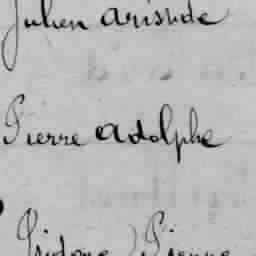 Julien Aristide
Pierre Adolphe
Isidore Pierre